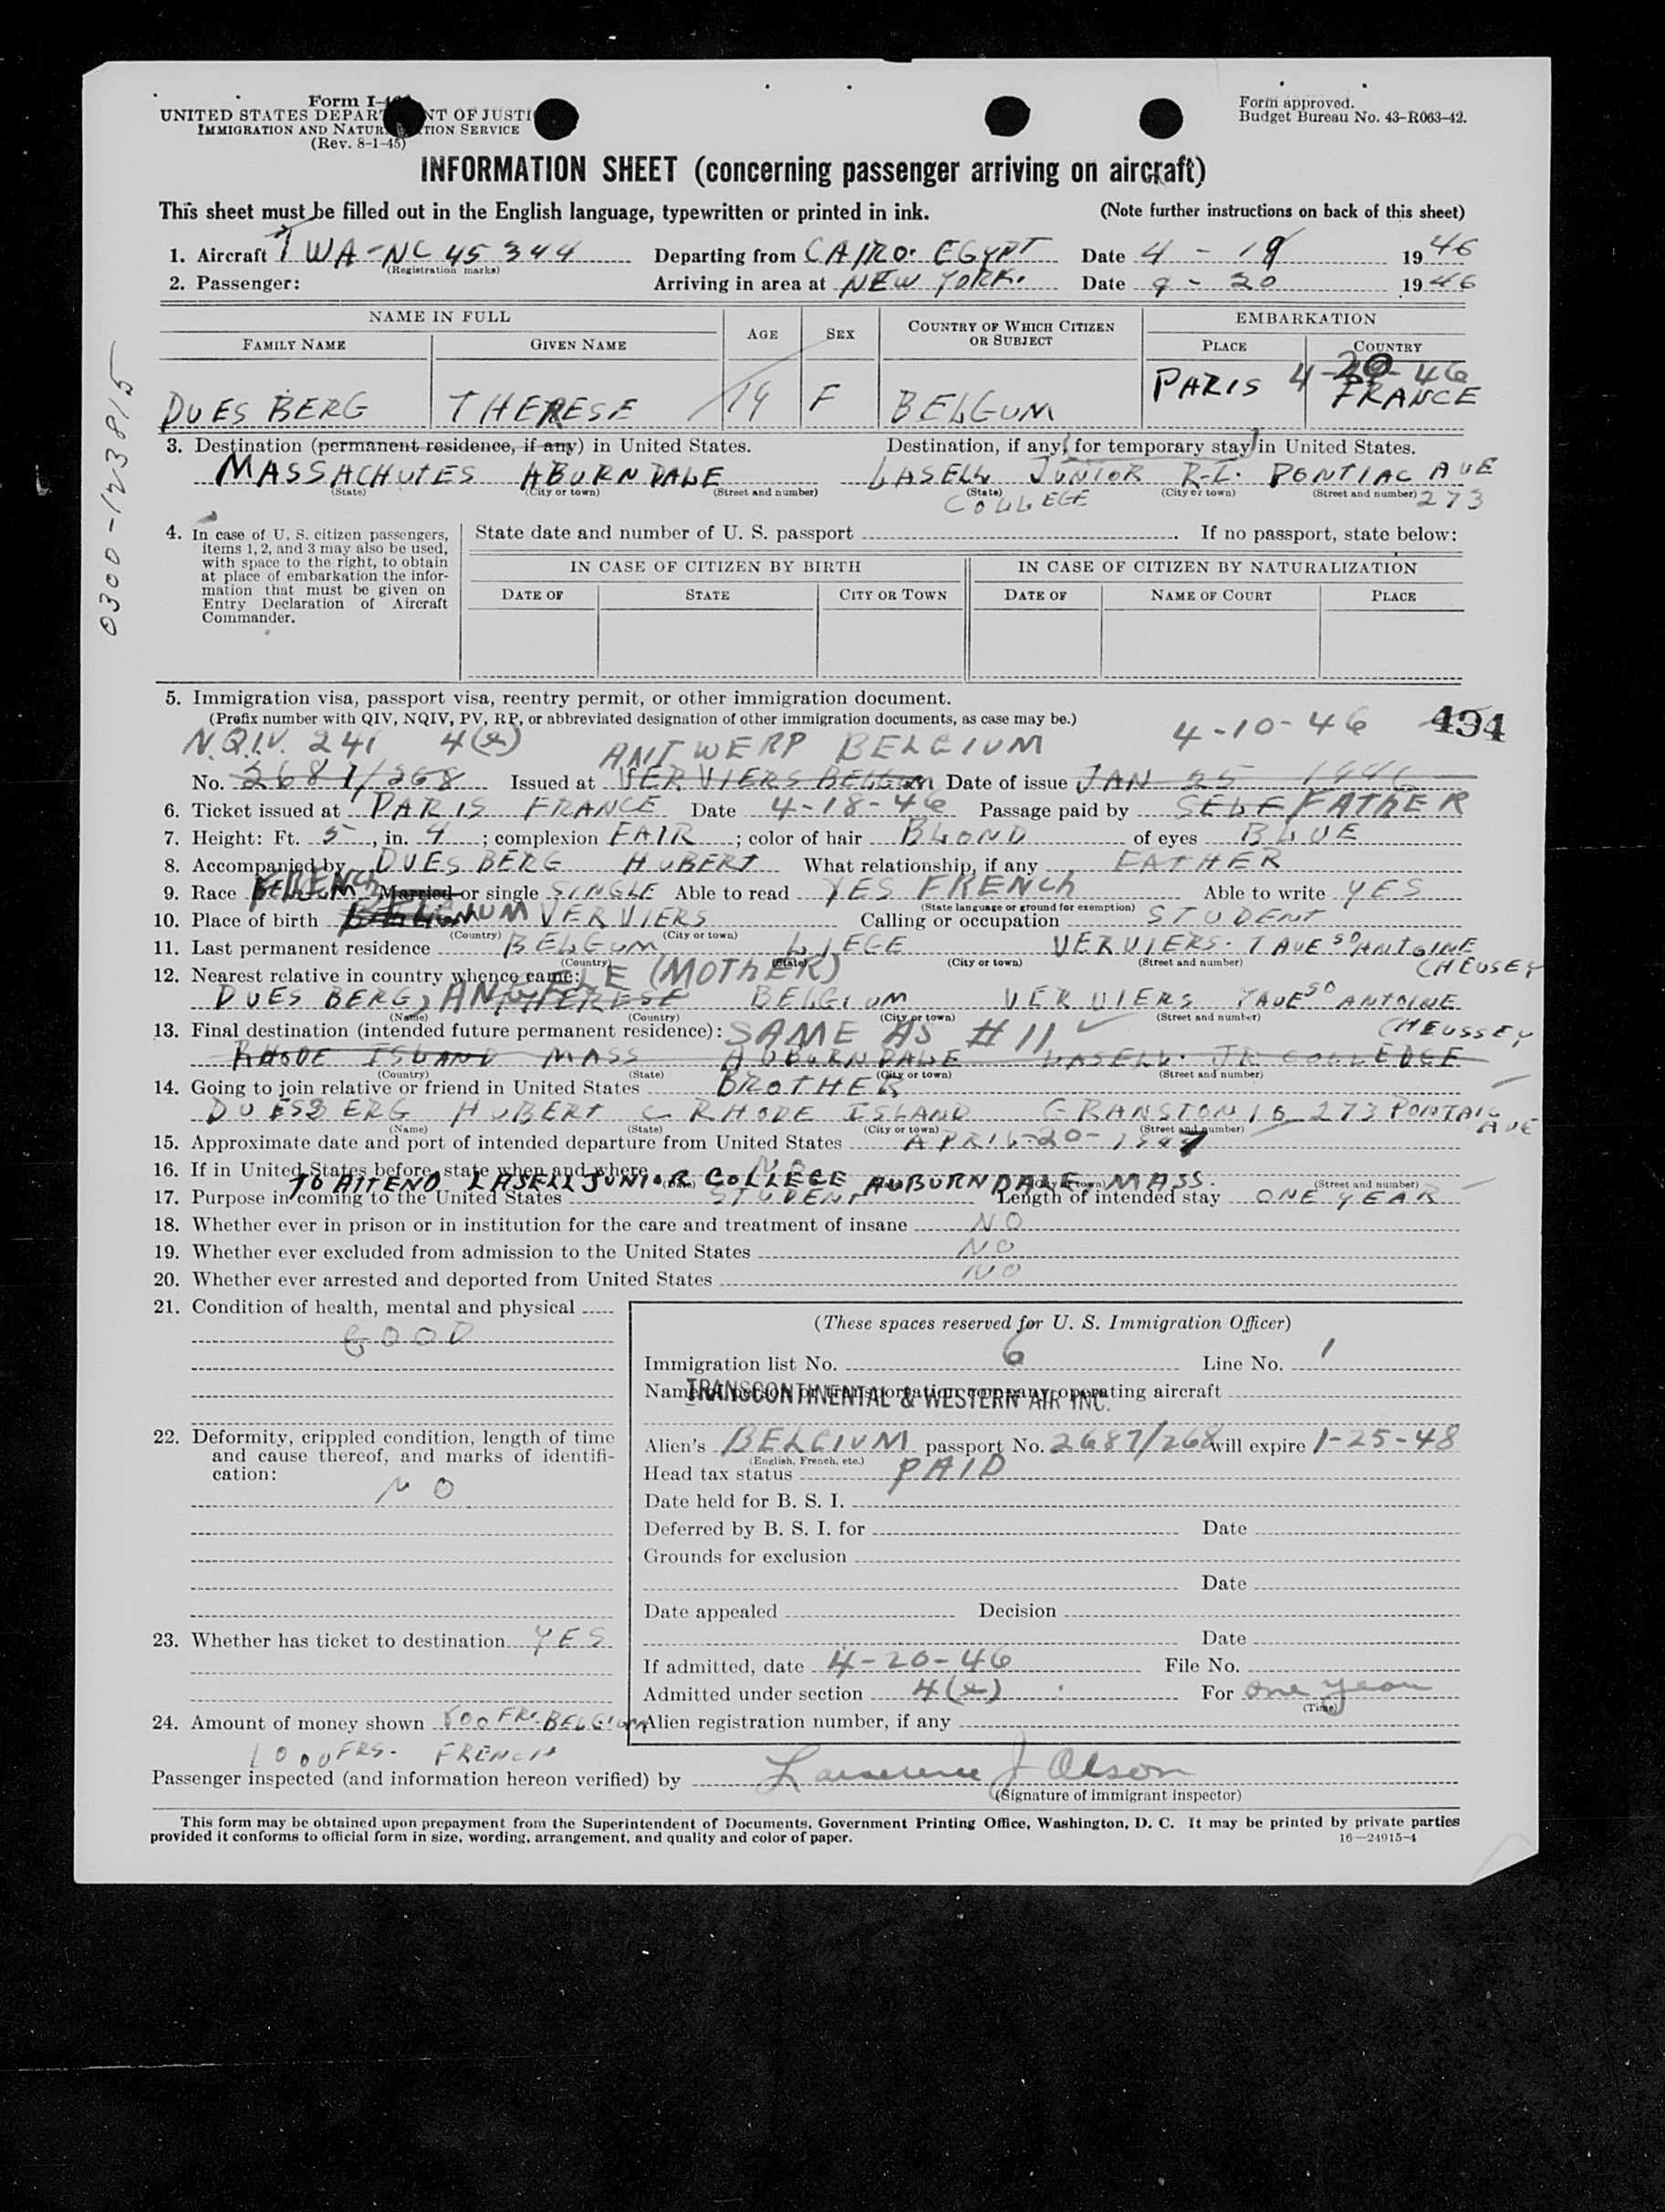 Form I-
UNITED STATES DEPAR NT OF JUSTI
IMMIGRATION AND NATUR TION SERVICE
(Rev. 8-1-45)
Form approved.
Budget Bureau No. 43-R063-42.
INFORMATION SHEET (concerning passenger arriving on aircraft)
This sheet must be filled out in the English language, typewritten or printed in ink. (Note further instructions on back of this sheet)
1. Aircraft TWA-NC 45344 Departing from CAIRO. EGYPT Date 4 - 19 1946
(Registration marks)
2. Passenger: Arriving in area at NEW YORK. Date 9 - 20 1946
NAME IN FULL AGE SEX COUNTRY OF WHICH CITIZEN OR SUBJECT EMBARKATION
FAMILY NAME GIVEN NAME PLACE COUNTRY
4-20-46
DUES BERG THERESE 19 F BELGUM PARIS FRANCE
3. Destination (permanent residence, if any) in United States. Destination, if any, (for temporary stay) in United States.
MASSACHUTES ABURNDALE LASELL JUNIOR R-I. PONTIAC AUE
(State) (City or town) (Street and number) (State) (City or town) (Street and number)
COLLEGE 273
0300-123815
4. In case of U. S. citizen passengers, items 1, 2, and 3 may also be used, with space to the right, to obtain at place of embarkation the information that must be given on Entry Declaration of Aircraft Commander.
State date and number of U. S. passport If no passport, state below:
IN CASE OF CITIZEN BY BIRTH IN CASE OF CITIZEN BY NATURALIZATION
DATE OF STATE CITY OR TOWN DATE OF NAME OF COURT PLACE
5. Immigration visa, passport visa, reentry permit, or other immigration document.
(Prefix number with QIV, NQIV, PV, RP, or abbreviated designation of other immigration documents, as case may be.)
N.Q.I.V. 241 4(e) ANTWERP BELGIUM 4-10-46 494
No. 2681/268 Issued at VERVIERS BELGUM Date of issue JAN 25 1946
6. Ticket issued at PARIS FRANCE Date 4-18-46 Passage paid by SELF FATHER
7. Height: Ft. 5, in. 4; complexion FAIR; color of hair BLOND of eyes BLUE
8. Accompanied by DUES BERG HUBERT What relationship, if any FATHER
9. Race BELGUM FRENCH Married or single SINGLE Able to read YES FRENCH Able to write YES
(State language or ground for exemption)
10. Place of birth VERVIERS Calling or occupation STUDENT
(Country) (City or town)
11. Last permanent residence BELGUM LIEGE VERVIERS. TAUE SO ANTOINE
(Country) (State) (City or town) (Street and number)
CHEUSEY
12. Nearest relative in country whence came: ANGELE (MOTHER)
DUES BERG, THERESE BELGIUM VERVIERS TAUE SO ANTOINE
(Name) (Country) (City or town) (Street and number)
CHEUSSEY
13. Final destination (intended future permanent residence): SAME AS #11
RHODE ISLAND MASS AUBURNDALE LASELL. JR COLLEGE
(Country) (State) (City or town) (Street and number)
14. Going to join relative or friend in United States BROTHER
DUESBERG HUBERT C RHODE ISLAND GRANSTON 10 273 PONTAIC AUE
(Name) (State) (City or town) (Street and number)
15. Approximate date and port of intended departure from United States APRIL-20-1947
16. If in United States before, state when and where NO
(Street and number)
TO ATTEND LASELL JUNIOR COLLEGE AUBURNDALE MASS.
17. Purpose in coming to the United States STUDENT Length of intended stay ONE YEAR
18. Whether ever in prison or in institution for the care and treatment of insane NO
19. Whether ever excluded from admission to the United States NO
20. Whether ever arrested and deported from United States NO
21. Condition of health, mental and physical
GOOD
22. Deformity, crippled condition, length of time and cause thereof, and marks of identification:
NO
23. Whether has ticket to destination YES
24. Amount of money shown 500 FR. BELGIUM
1000 FRS. FRENCH
(These spaces reserved for U. S. Immigration Officer)
Immigration list No. 6 Line No. 1
Name of person or transportation company operating aircraft
TRANSCONTINENTAL & WESTERN AIR INC.
Alien's BELGIUM passport No. 2687/268 will expire 1-25-48
(English, French, etc.)
Head tax status PAID
Date held for B. S. I.
Deferred by B. S. I. for Date
Grounds for exclusion
Date
Date appealed Decision
Date
If admitted, date 4-20-46 File No.
Admitted under section 4(e) For one year
(Time)
Alien registration number, if any
Passenger inspected (and information hereon verified) by Lawrence J Olson
(Signature of immigrant inspector)
This form may be obtained upon prepayment from the Superintendent of Documents, Government Printing Office, Washington, D. C. It may be printed by private parties
provided it conforms to official form in size, wording, arrangement, and quality and color of paper. 16—24915-4